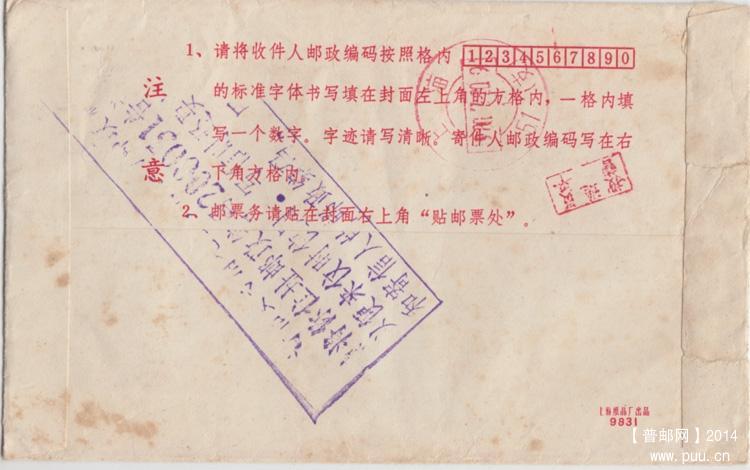 注意
1、请将收件人邮政编码按照格内 1234567890
的标准字体书写填在封面左上角的方格内，一格内填
写一个数字。字迹请写清晰。寄件人邮政编码写在右
下角方格内。
2、邮票务请贴在封面右上角“贴邮票处”。
上海
200031
邮政
和寄信人
上海纸品厂出品
9831
【普邮网】2014
www.puu.cn